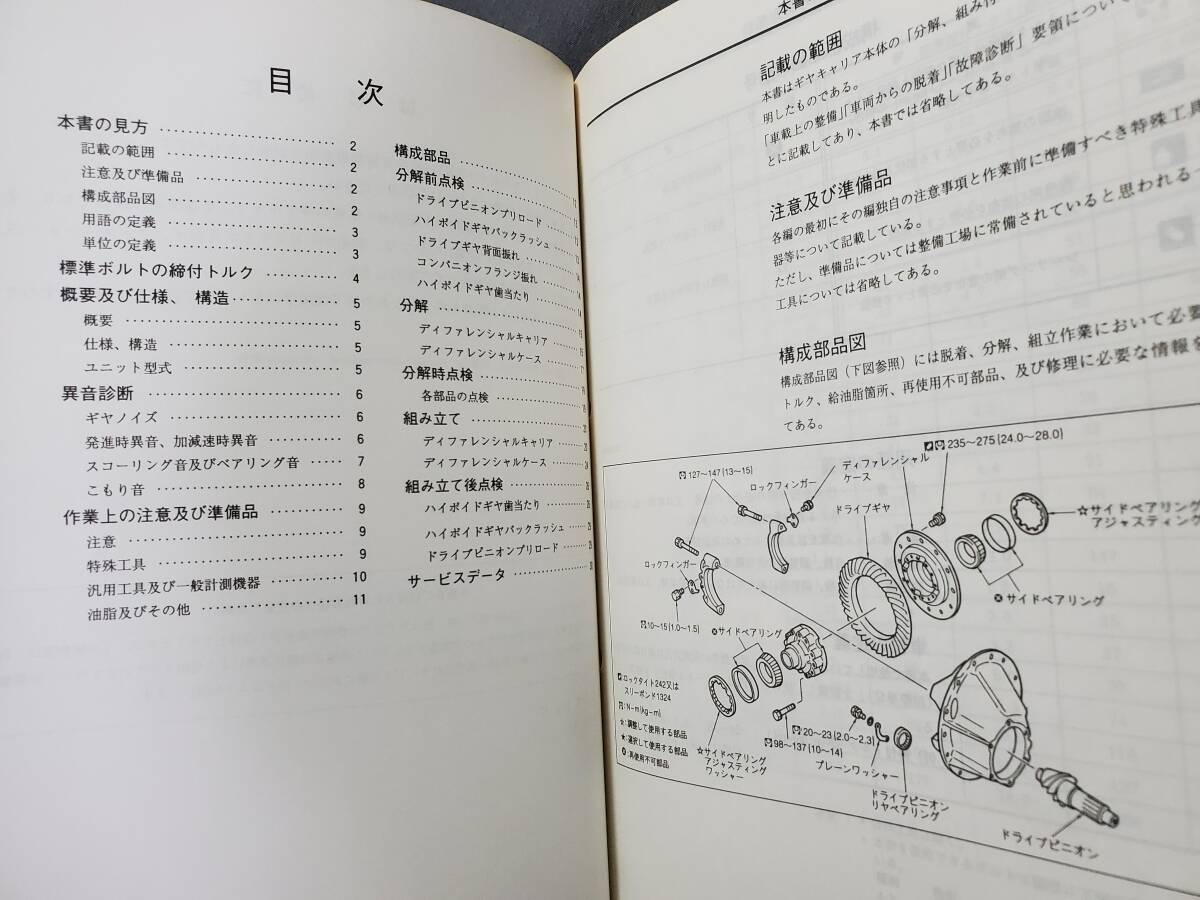 目 次
本書の見方 2
記載の範囲 2
注意及び準備品 2
構成部品図 2
用語の定義 3
単位の定義 3
標準ボルトの締付トルク 4
概要及び仕様、構造 5
概要 5
仕様、構造 5
ユニット型式 5
異音診断 6
ギヤノイズ 6
発進時異音、加減速時異音 6
スコーリング音及びベアリング音 7
こもり音 8
作業上の注意及び準備品 9
注意 9
特殊工具 9
汎用工具及び一般計測機器 10
油脂及びその他 11
構成部品
分解前点検
ドライブピニオンプリロード
ハイポイドギヤバックラッシュ
ドライブギヤ背面振れ
コンパニオンフランジ振れ
ハイポイドギヤ歯当たり
分解
ディファレンシャルキャリア
ディファレンシャルケース
分解時点検
各部品の点検
組み立て
ディファレンシャルキャリア
ディファレンシャルケース
組み立て後点検
ハイポイドギヤ歯当たり
ハイポイドギヤバックラッシュ
ドライブピニオンプリロード
サービスデータ
本書
記載の範囲
本書はギヤキャリア本体の「分解、組み付
明したものである。
「車載上の整備」「車両からの脱着」「故障診断」要領につい
とに記載してあり、本書では省略してある。
注意及び準備品
各編の最初にその編独自の注意事項と作業前に準備すべき特殊工具
器等について記載している。
ただし、準備品については整備工場に常備されていると思われる
工具については省略してある。
構成部品図
構成部品図（下図参照）には脱着、分解、組立作業において必要
トルク、給油脂箇所、再使用不可部品、及び修理に必要な情報を
てある。
127～147 (13～15)
ロックフィンガー
ディファレンシャル
ケース
235～275 (24.0～28.0)
ドライブギヤ
☆サイドベアリング
アジャスティング
ロックフィンガー
サイドベアリング
10～15 (1.0～1.5)
サイドベアリング
:ロックタイト242又は
スリーボンド1324
:N-m (kg-m)
☆:調整して使用する部品
★:選択して使用する部品
:再使用不可部品
☆サイドベアリング
アジャスティング
ワッシャー
98～137 (10～14)
20～23 (2.0～2.3)
プレーンワッシャー
ドライブピニオン
リヤベアリング
ドライブピニオン